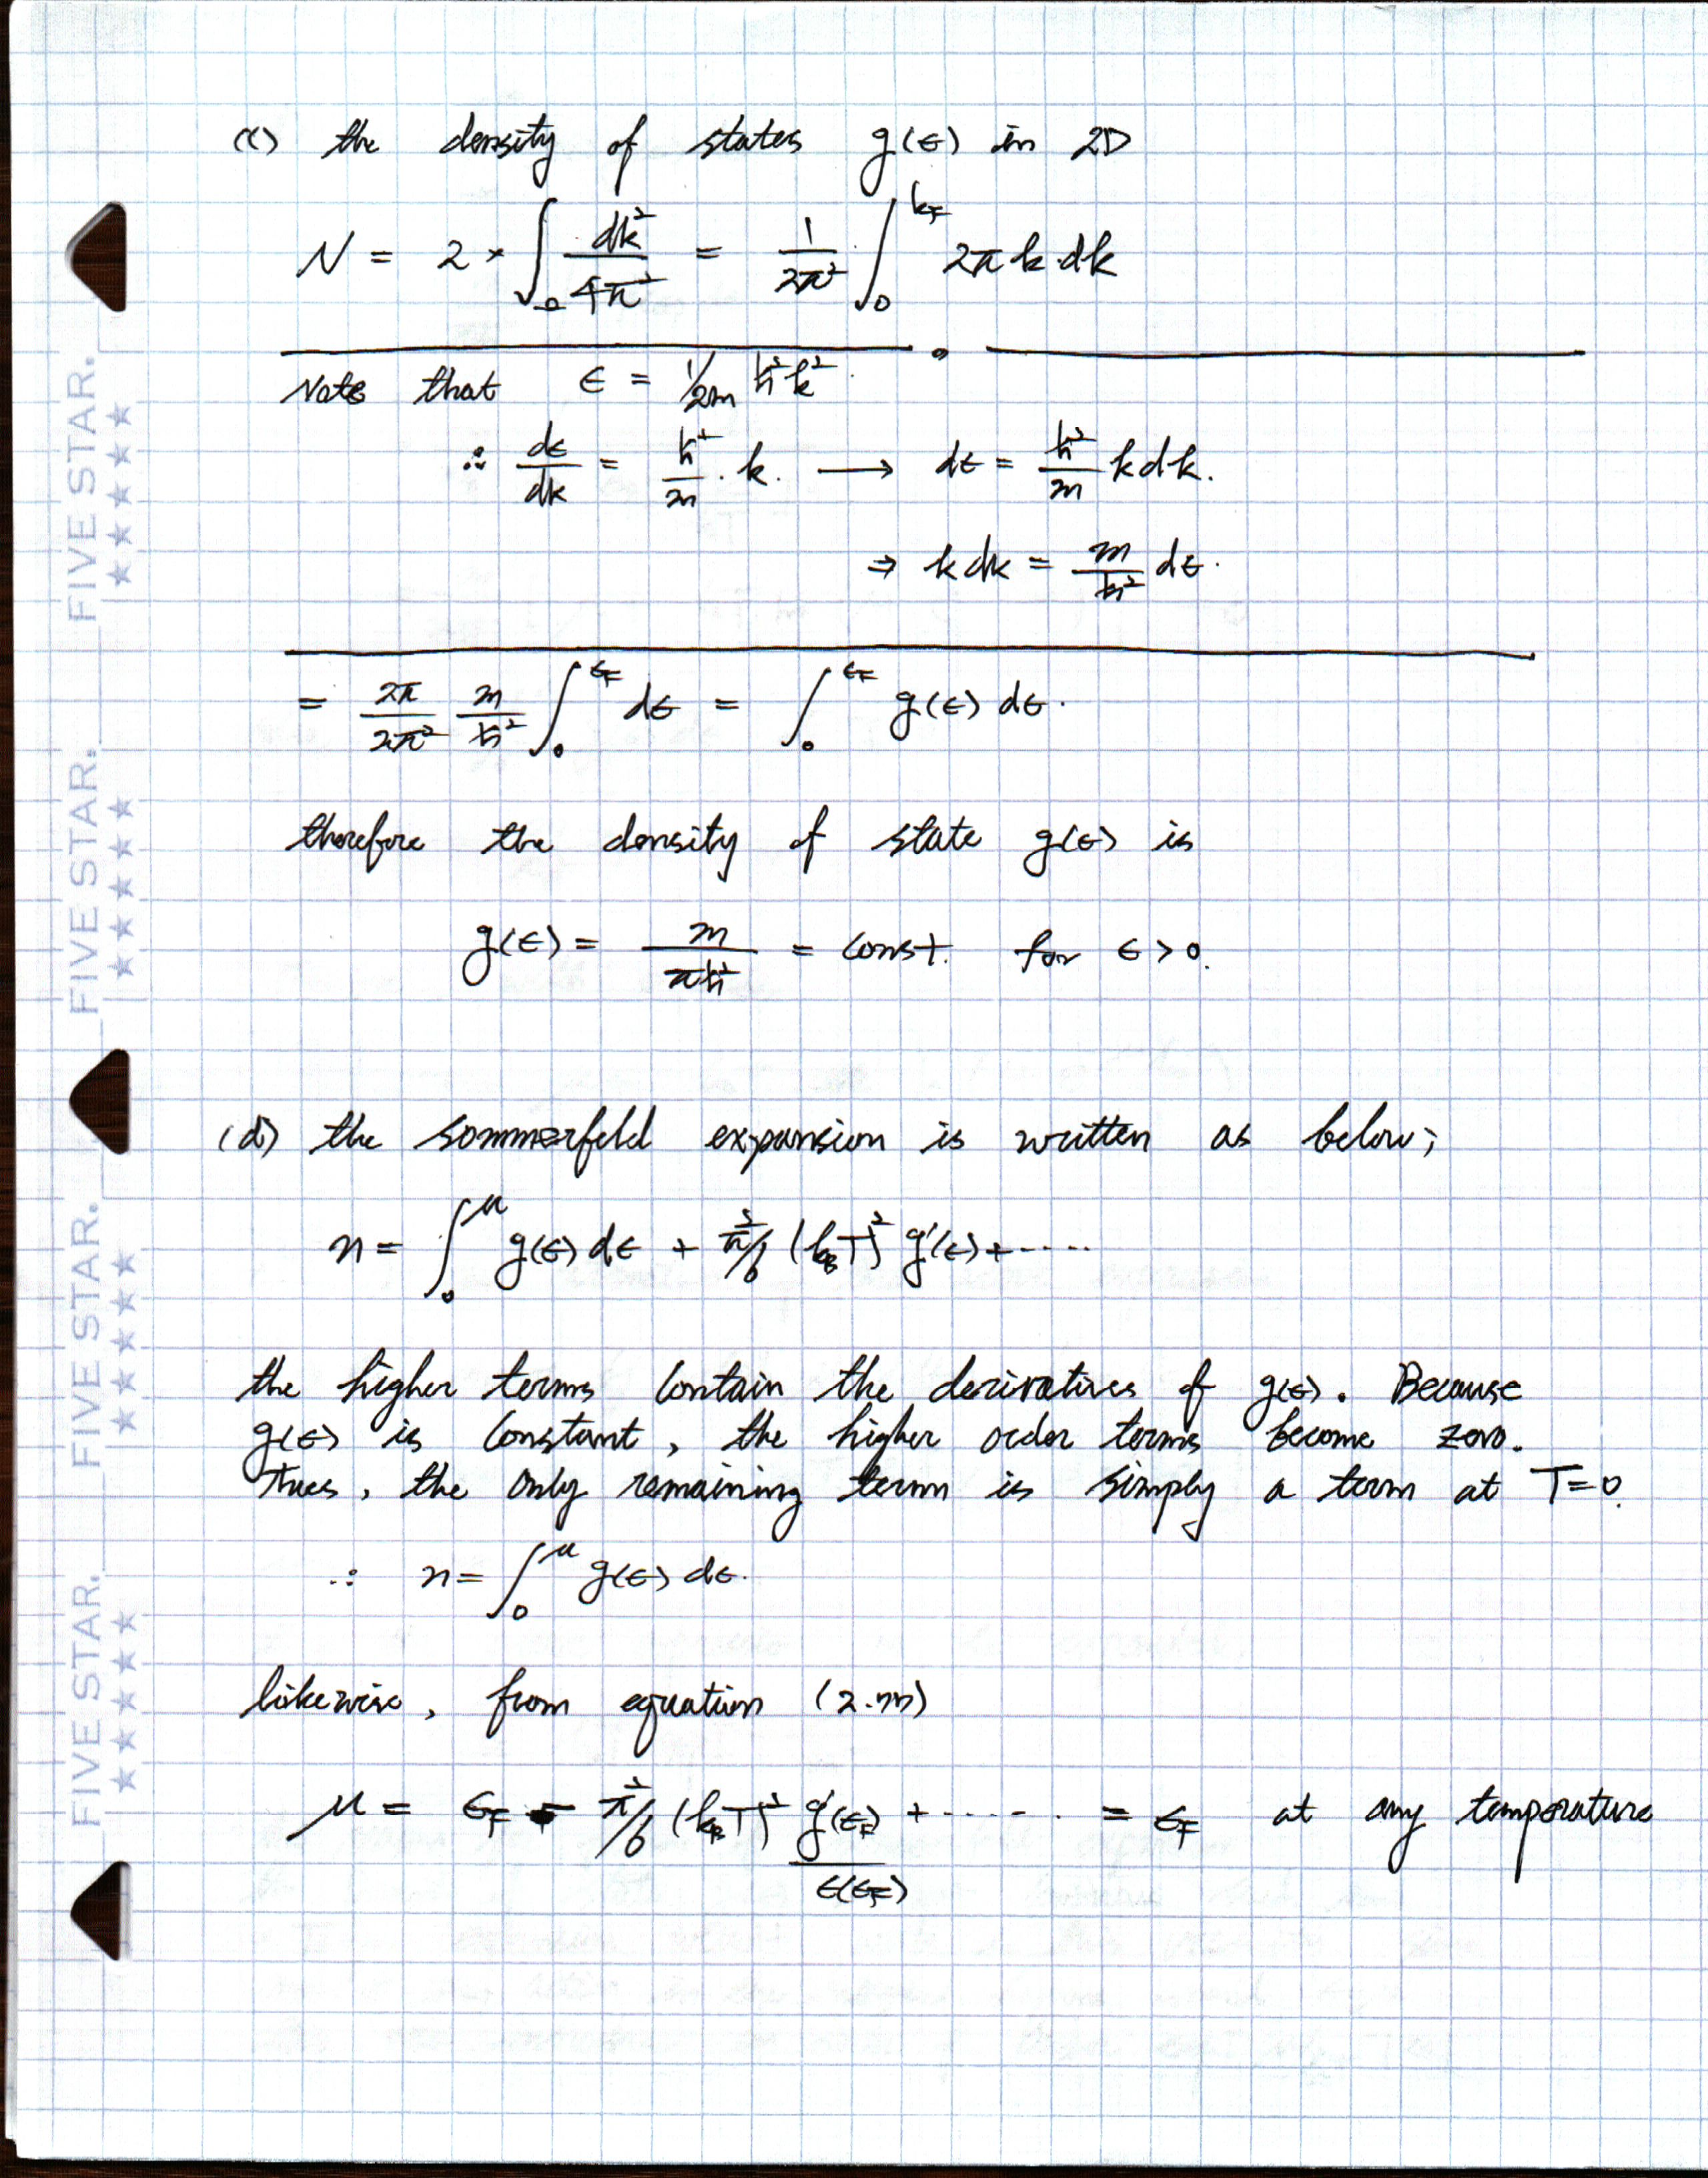 (c) the density of states g(ϵ) in 2D
N = 2 × ∫₀ dk²/4π² = 1/2π² ∫₀^k_F 2πk·dk
Note that ϵ = 1/2m ħ²k².
∴ dϵ/dk = ħ²/m · k. ⟶ dϵ = ħ²/m kdk.
⇒ kdk = m/ħ² dϵ.
= 2π/2π² m/ħ² ∫₀^ϵ_F dϵ = ∫₀^ϵ_F g(ϵ) dϵ.
therefore the density of state g(ϵ) is
g(ϵ) = m/πħ² = const. for ϵ > 0.
(d) the sommerfeld expansion is written as below;
n = ∫₀^μ g(ϵ) dϵ + π²/6 (k_BT)² g'(ϵ) + ·····
the higher terms contain the derivatives of g(ϵ). Because
g(ϵ) is constant, the higher order terms become zero.
Thus, the only remaining term is simply a term at T=0.
∴ n = ∫₀^μ g(ϵ) dϵ.
likewise, from equation (2.77)
μ = ϵ_F - π²/6 (k_BT)² g'(ϵ_F)/ϵ(ϵ_F) + ······ = ϵ_F at any temperature
FIVE STAR.
FIVE STAR.
FIVE STAR.
FIVE STAR.